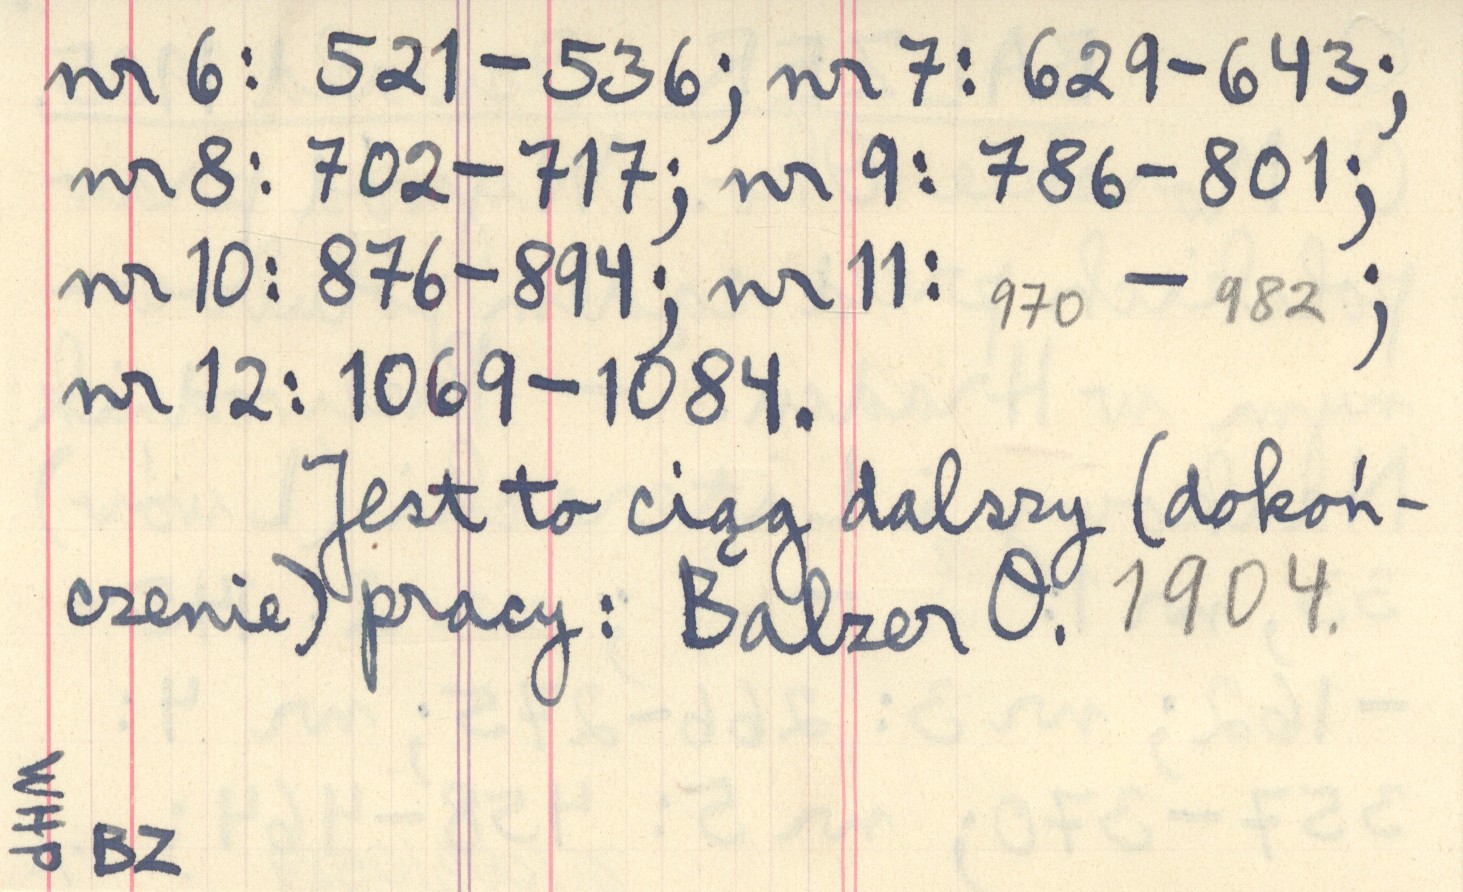 nr 6: 521-536; nr 7: 629-643;
nr 8: 702-717; nr 9: 786-801;
nr 10: 876-894; nr 11: 970 - 982;
nr 12: 1069-1084.
Jest to ciąg dalszy (dokoń-
czenie) pracy: Balzer O. 1904.
WHP
BZ